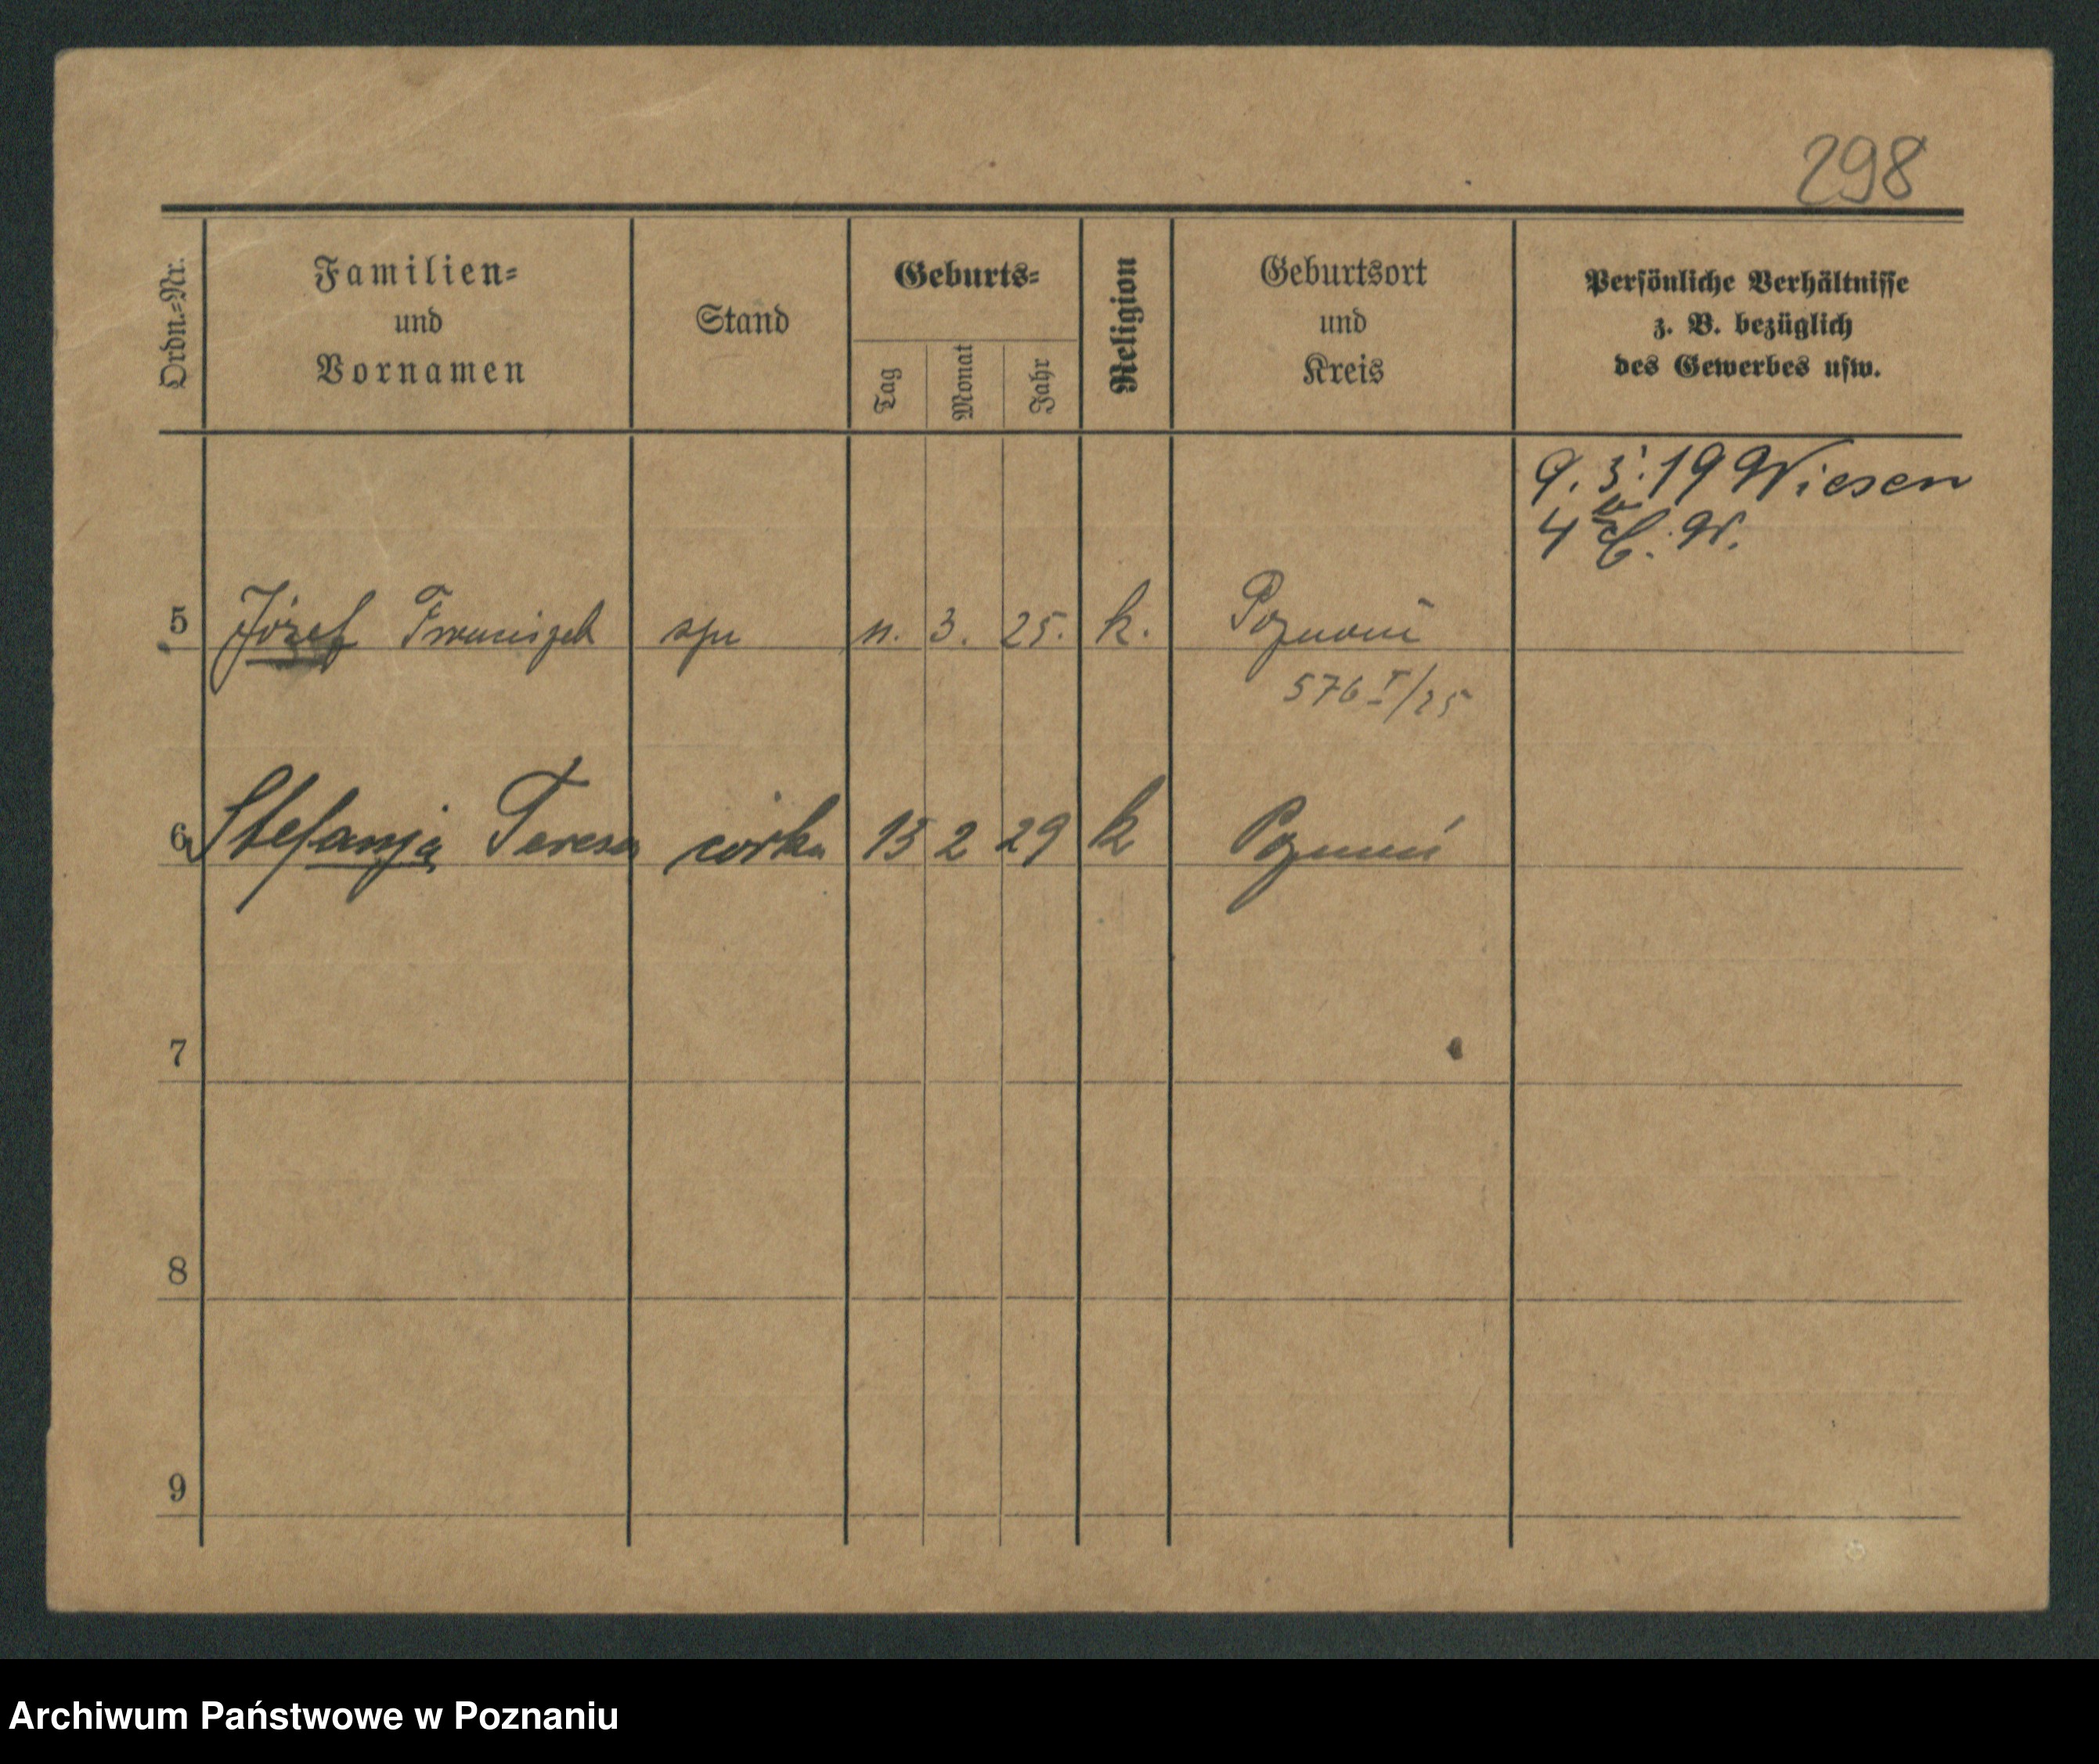 298
Ordn.=Nr.
Familien=
und
Vornamen
Stand
Geburts=
Tag
Monat
Jahr
Religion
Geburtsort
und
Kreis
Persönliche Verhältnisse
z. B. bezüglich
des Gewerbes usw.
9. 19 Wiesen
4 W.
5 Józef Franciszek 3. 25. k. Poznań
576 I/25
6 Stefanja Teresa córka 15 2 29 k Poznań
7
8
9
Archiwum Państwowe w Poznaniu